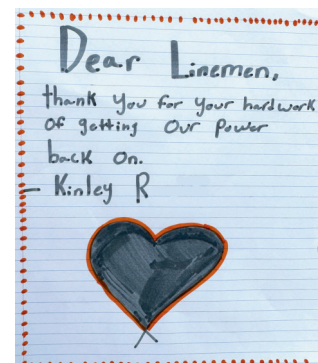 Dear Linemen,
thank you for your hardwork
of getting Our Power
back On.
- Kinley R